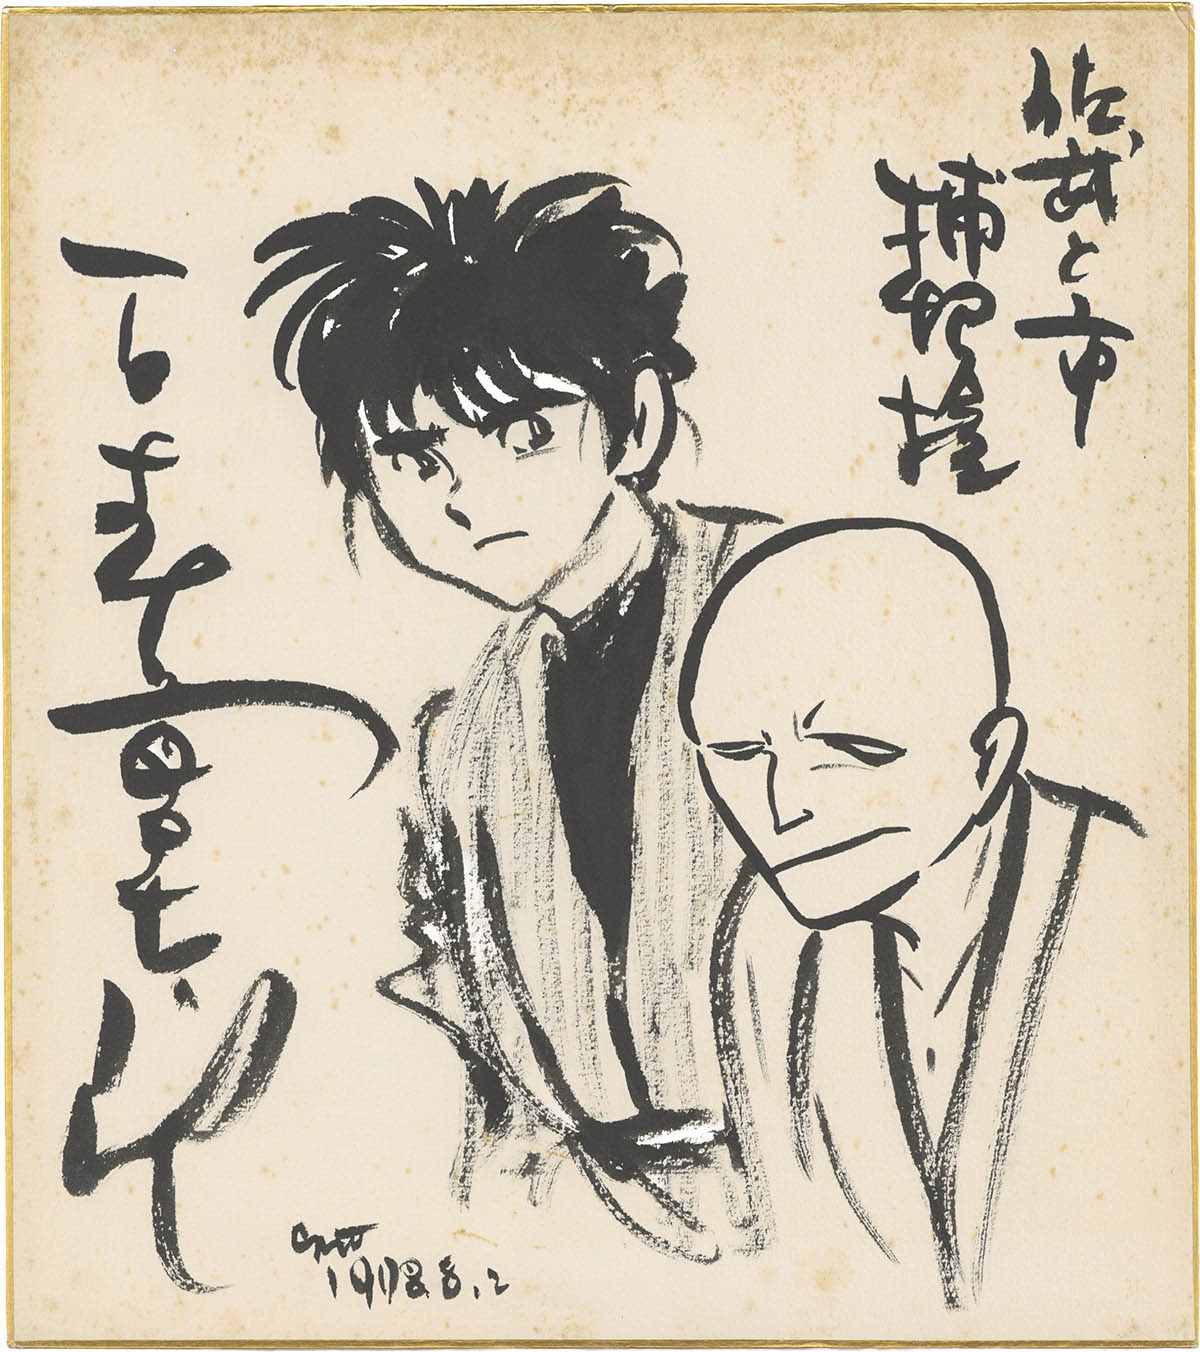 佐武と市
捕物控
石森章太郎
1978.8.2